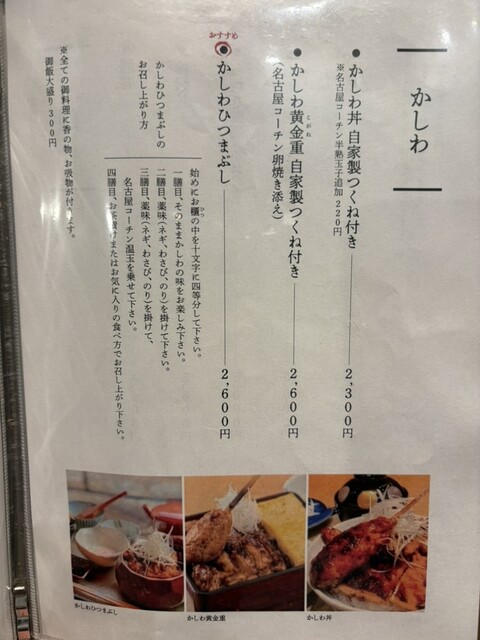 かしわ
● かしわ丼 自家製つくね付き 2,300円
※名古屋コーチン半熟玉子追加 220円
● かしわ黄金重 自家製つくね付き 2,600円
こがね
(名古屋コーチン卵焼き添え)
おすすめ
かしわひつまぶし 2,600円
かしわひつまぶしの
お召し上がり方
始めにお櫃の中を十文字に四等分して下さい。
ひつ
一膳目、そのままかしわの味をお楽しみ下さい。
二膳目、薬味(ネギ、わさび、のり)を掛けて下さい。
三膳目、薬味(ネギ、わさび、のり)を掛けて、
名古屋コーチン温玉を乗せて下さい。
四膳目、お茶漬けまたはお気に入りの食べ方でお召し上がり下さい。
※全ての御料理に香の物、お吸物が付きます。
御飯大盛り 300円
かしわひつまぶし
かしわ黄金重
かしわ丼